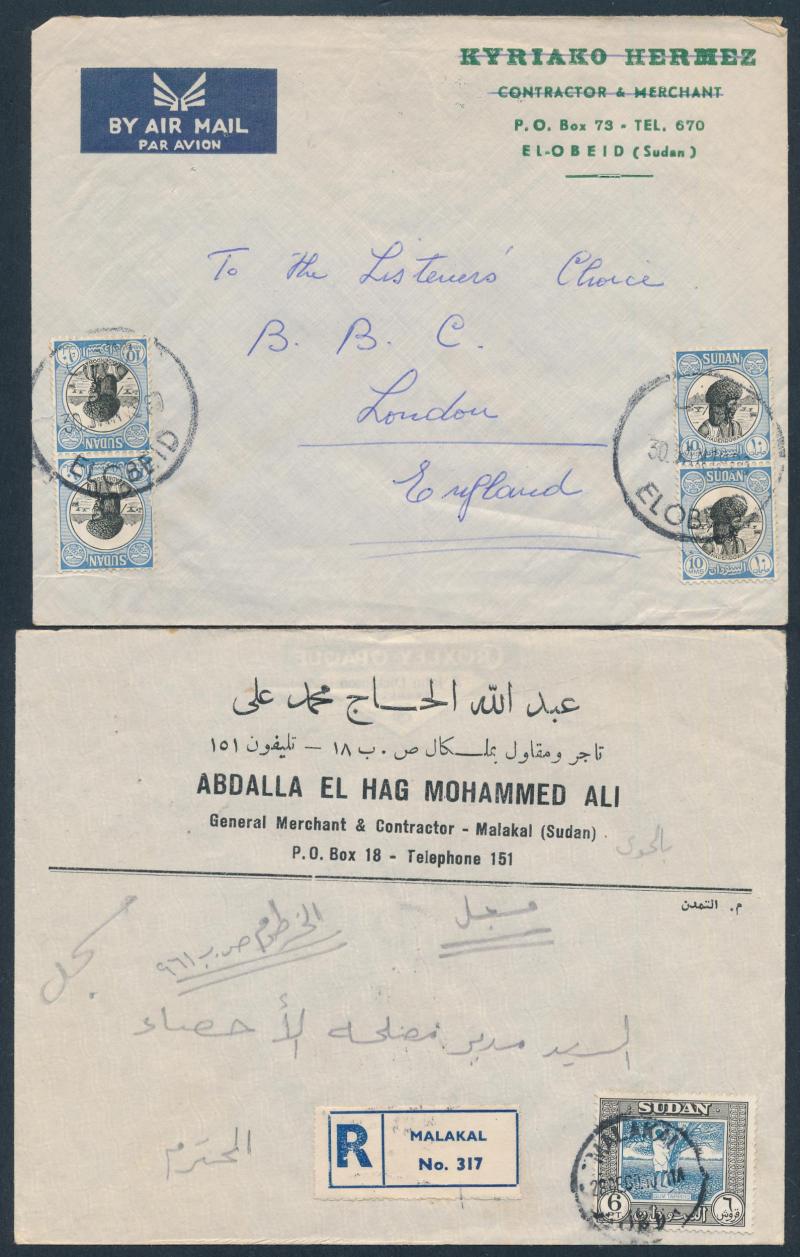 KYRIAKO HERMEZ
CONTRACTOR & MERCHANT
P. O. Box 73 - TEL. 670
EL-OBEID (Sudan)
BY AIR MAIL
PAR AVION
To the Listeners' Choice
B. B. C.
London
England
SUDAN
ELOBEID
SUDAN
SUDAN
10 ١٠
30
SUDAN
ELOB
10 MMS السودان ١٠
عبد الله الحـاج محمد على
تاجر ومقاول بملكال ص . ب ١٨ – تليفون ١٥١
ABDALLA EL HAG MOHAMMED ALI
General Merchant & Contractor - Malakal (Sudan)
P.O. Box 18 - Telephone 151
م. التمدن
مسجل
الخرطوم ص.ب ٩٦١
السيد مدير مصلحة الأحصاء
المحترم
R
MALAKAL
No. 317
SUDAN
MALAKAL
6 PT. السودان ٦ قروش